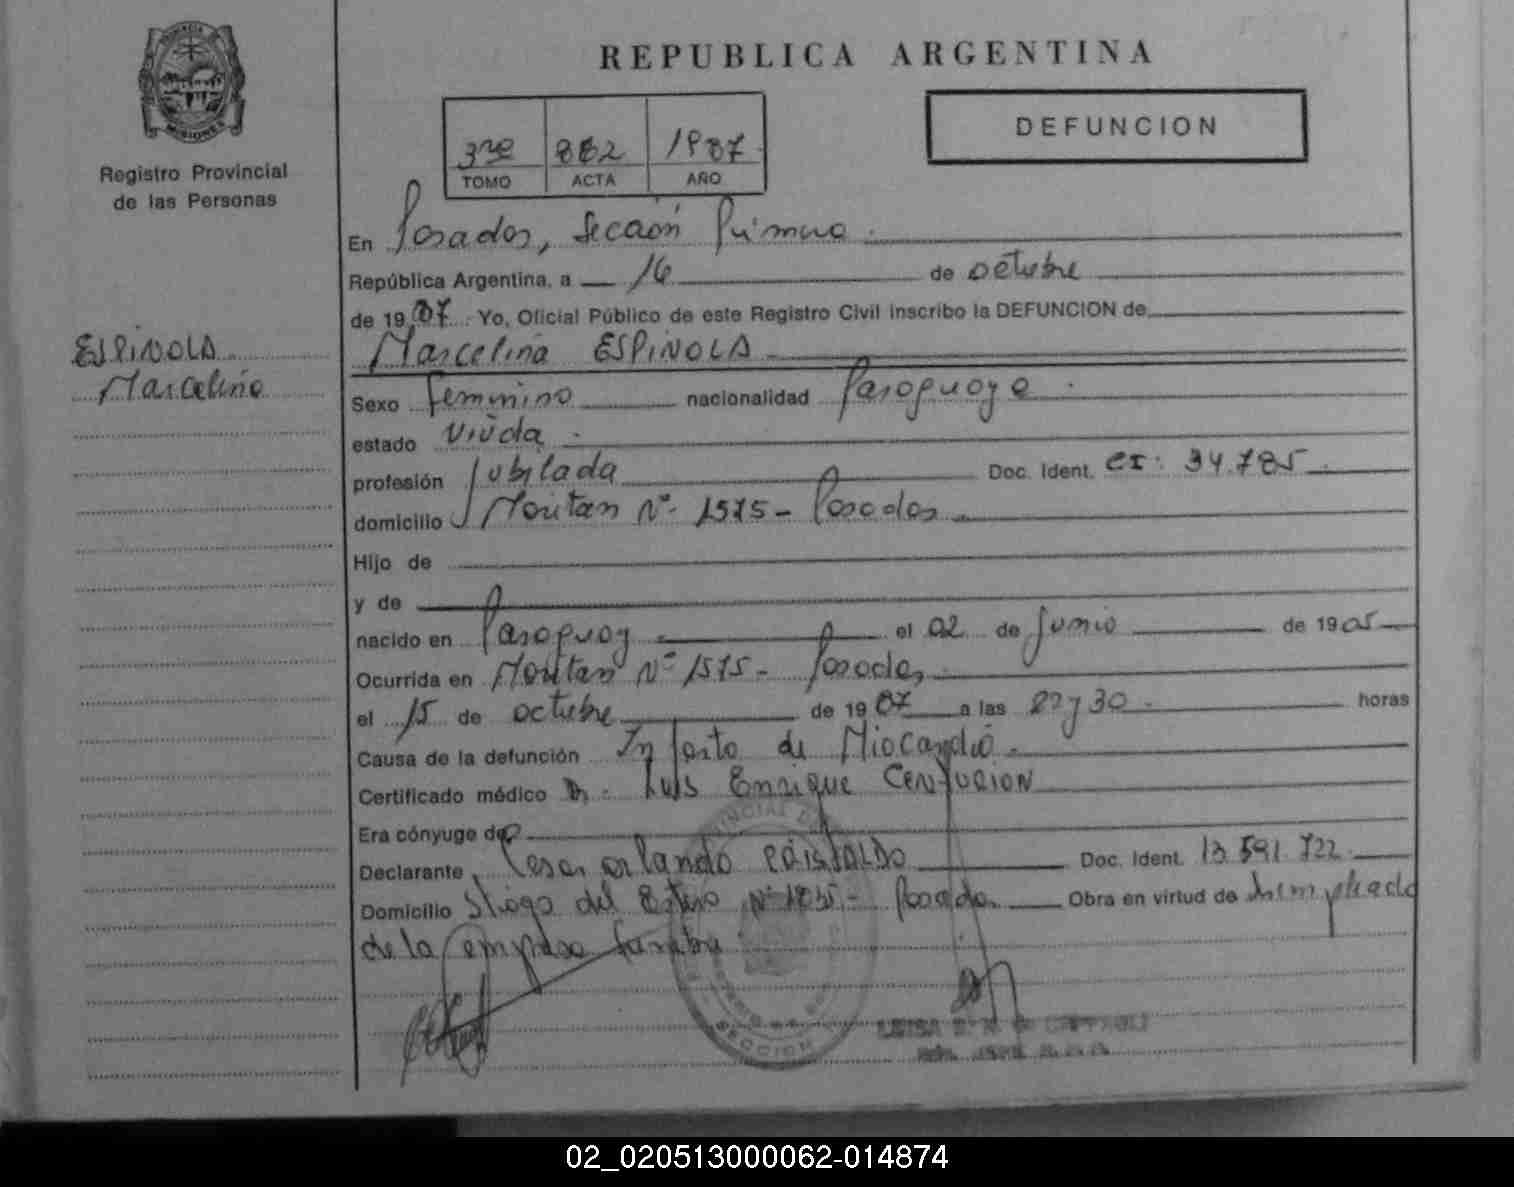 REPUBLICA ARGENTINA
PROVINCIA
MISIONES
Registro Provincial
de las Personas
3ro 882 1987
TOMO ACTA AÑO
DEFUNCION
ESPINOLA
Marcelina
En Posadas, Sección Primera.
República Argentina, a 16 de octubre
de 1987. Yo, Oficial Público de este Registro Civil inscribo la DEFUNCION de
Marcelina ESPINOLA
Sexo femenino nacionalidad Paraguaya.
estado viuda.
profesión Jubilada Doc. Ident. CI: 34.785.
domicilio N° 1575 - Posadas
Hijo de
y de
nacido en Paraguay el 02 de Junio de 1905
Ocurrida en N° 1575 - Posadas
el 15 de octubre de 1987 a las 22 y 30 horas
Causa de la defunción Infarto de Miocardio.
Certificado médico Dr. Luis Enrique CENTURION
Era cónyuge de
Declarante Cesar Orlando CRISTALDO Doc. Ident. 13.591.722.
Domicilio Stiago del Estero N° - Posadas Obra en virtud de ser empleado
de la empresa funebre
SECCION
02_020513000062-014874